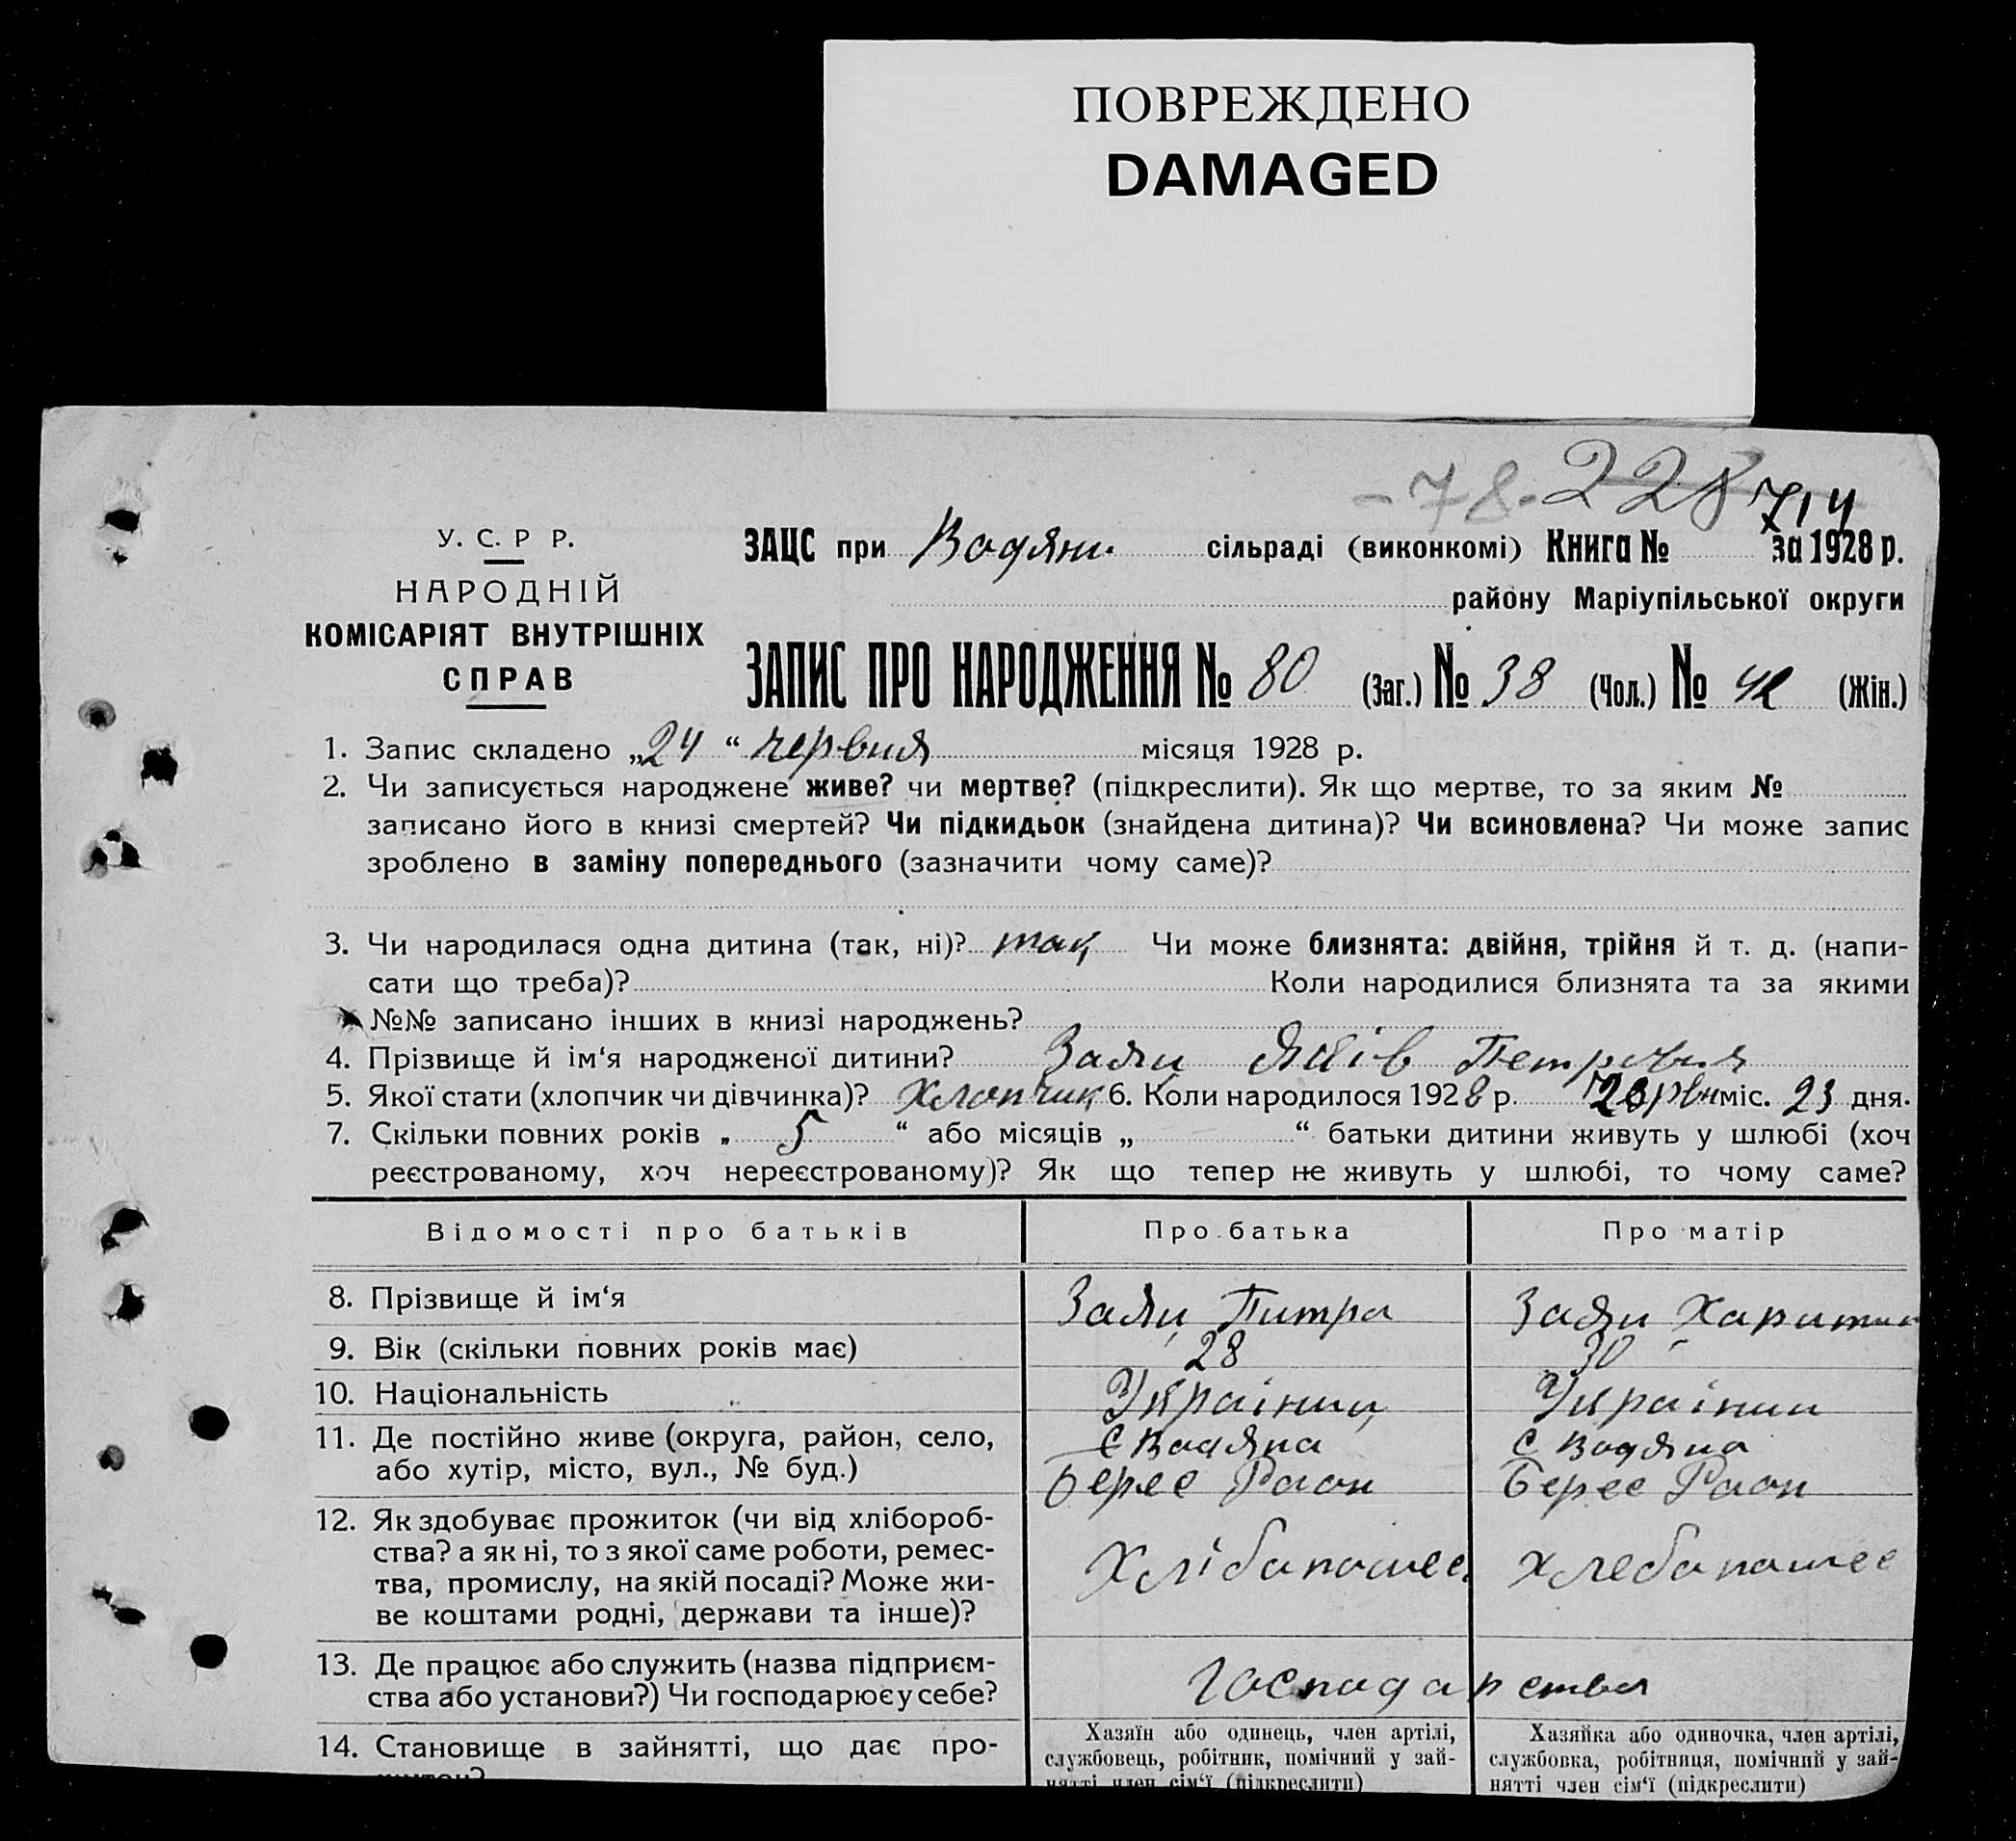 ПОВРЕЖДЕНО
DAMAGED
-78. 228 714
У. С. Р Р.
НАРОДНІЙ
КОМІСАРІЯТ ВНУТРІШНІХ
СПРАВ
ЗАЦС при Водян. сільраді (виконкомі) Книга № за 1928 р.
району Маріупільської округи
ЗАПИС ПРО НАРОДЖЕННЯ № 80 (Заг.) № 38 (Чол.) № 42 (Жін.)
1. Запис складено „24“ червня місяця 1928 р.
2. Чи записується народжене живе? чи мертве? (підкреслити). Як що мертве, то за яким №
записано його в книзі смертей? Чи підкидьок (знайдена дитина)? Чи всиновлена? Чи може запис
зроблено в заміну попереднього (зазначити чому саме)?
3. Чи народилася одна дитина (так, ні)? так Чи може близнята: двійня, трійня й т. д. (напи-
сати що треба)? Коли народилися близнята та за якими
№№ записано інших в книзі народжень?
4. Прізвище й ім‘я народженої дитини? Заяц Яків
5. Якої стати (хлопчик чи дівчинка)? Хлопчик 6. Коли народилося 1928 р. міс. 23 дня.
7. Скільки повних років „ 5 “ або місяців „ “ батьки дитини живуть у шлюбі (хоч
реєстрованому, хоч нереєстрованому)? Як що тепер не живуть у шлюбі, то чому саме?
Відомості про батьків Про батька Про матір
8. Прізвище й ім‘я Заяц Питра Заяц
9. Вік (скільки повних років має) 28 30
10. Національність Украінец Украінка
11. Де постійно живе (округа, район, село, с Водяна с Водяна
або хутір, місто, вул., № буд.) Берес Раон Берес Раон
12. Як здобуває прожиток (чи від хлібороб-
ства? а як ні, то з якої саме роботи, ремес- Хлібапашес. хлебапашес
тва, промислу, на якій посаді? Може жи-
ве коштами родні, держави та інше)?
13. Де працює або служить (назва підприєм- Господарства
ства або установи?) Чи господарює у себе?
14. Становище в зайнятті, що дає про- Хазяїн або одинець, член артілі, Хазяйка або одиночка, член артілі,
службовець, робітник, помічний у зай- службовка, робітниця, помічний у зай-
нятті член сім‘ї (підкреслити) нятті член сім‘ї (підкреслити)